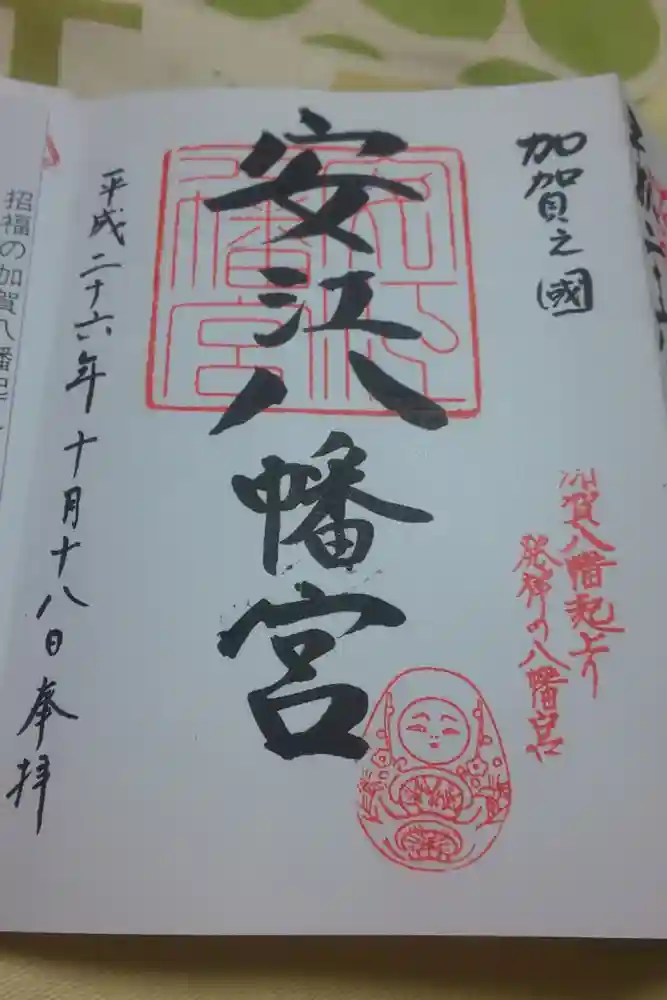 加賀之國
加賀八幡起上り
発祥の八幡宮
安江八幡宮
平成二十六年十月十八日奉拝
招福の加賀八幡起